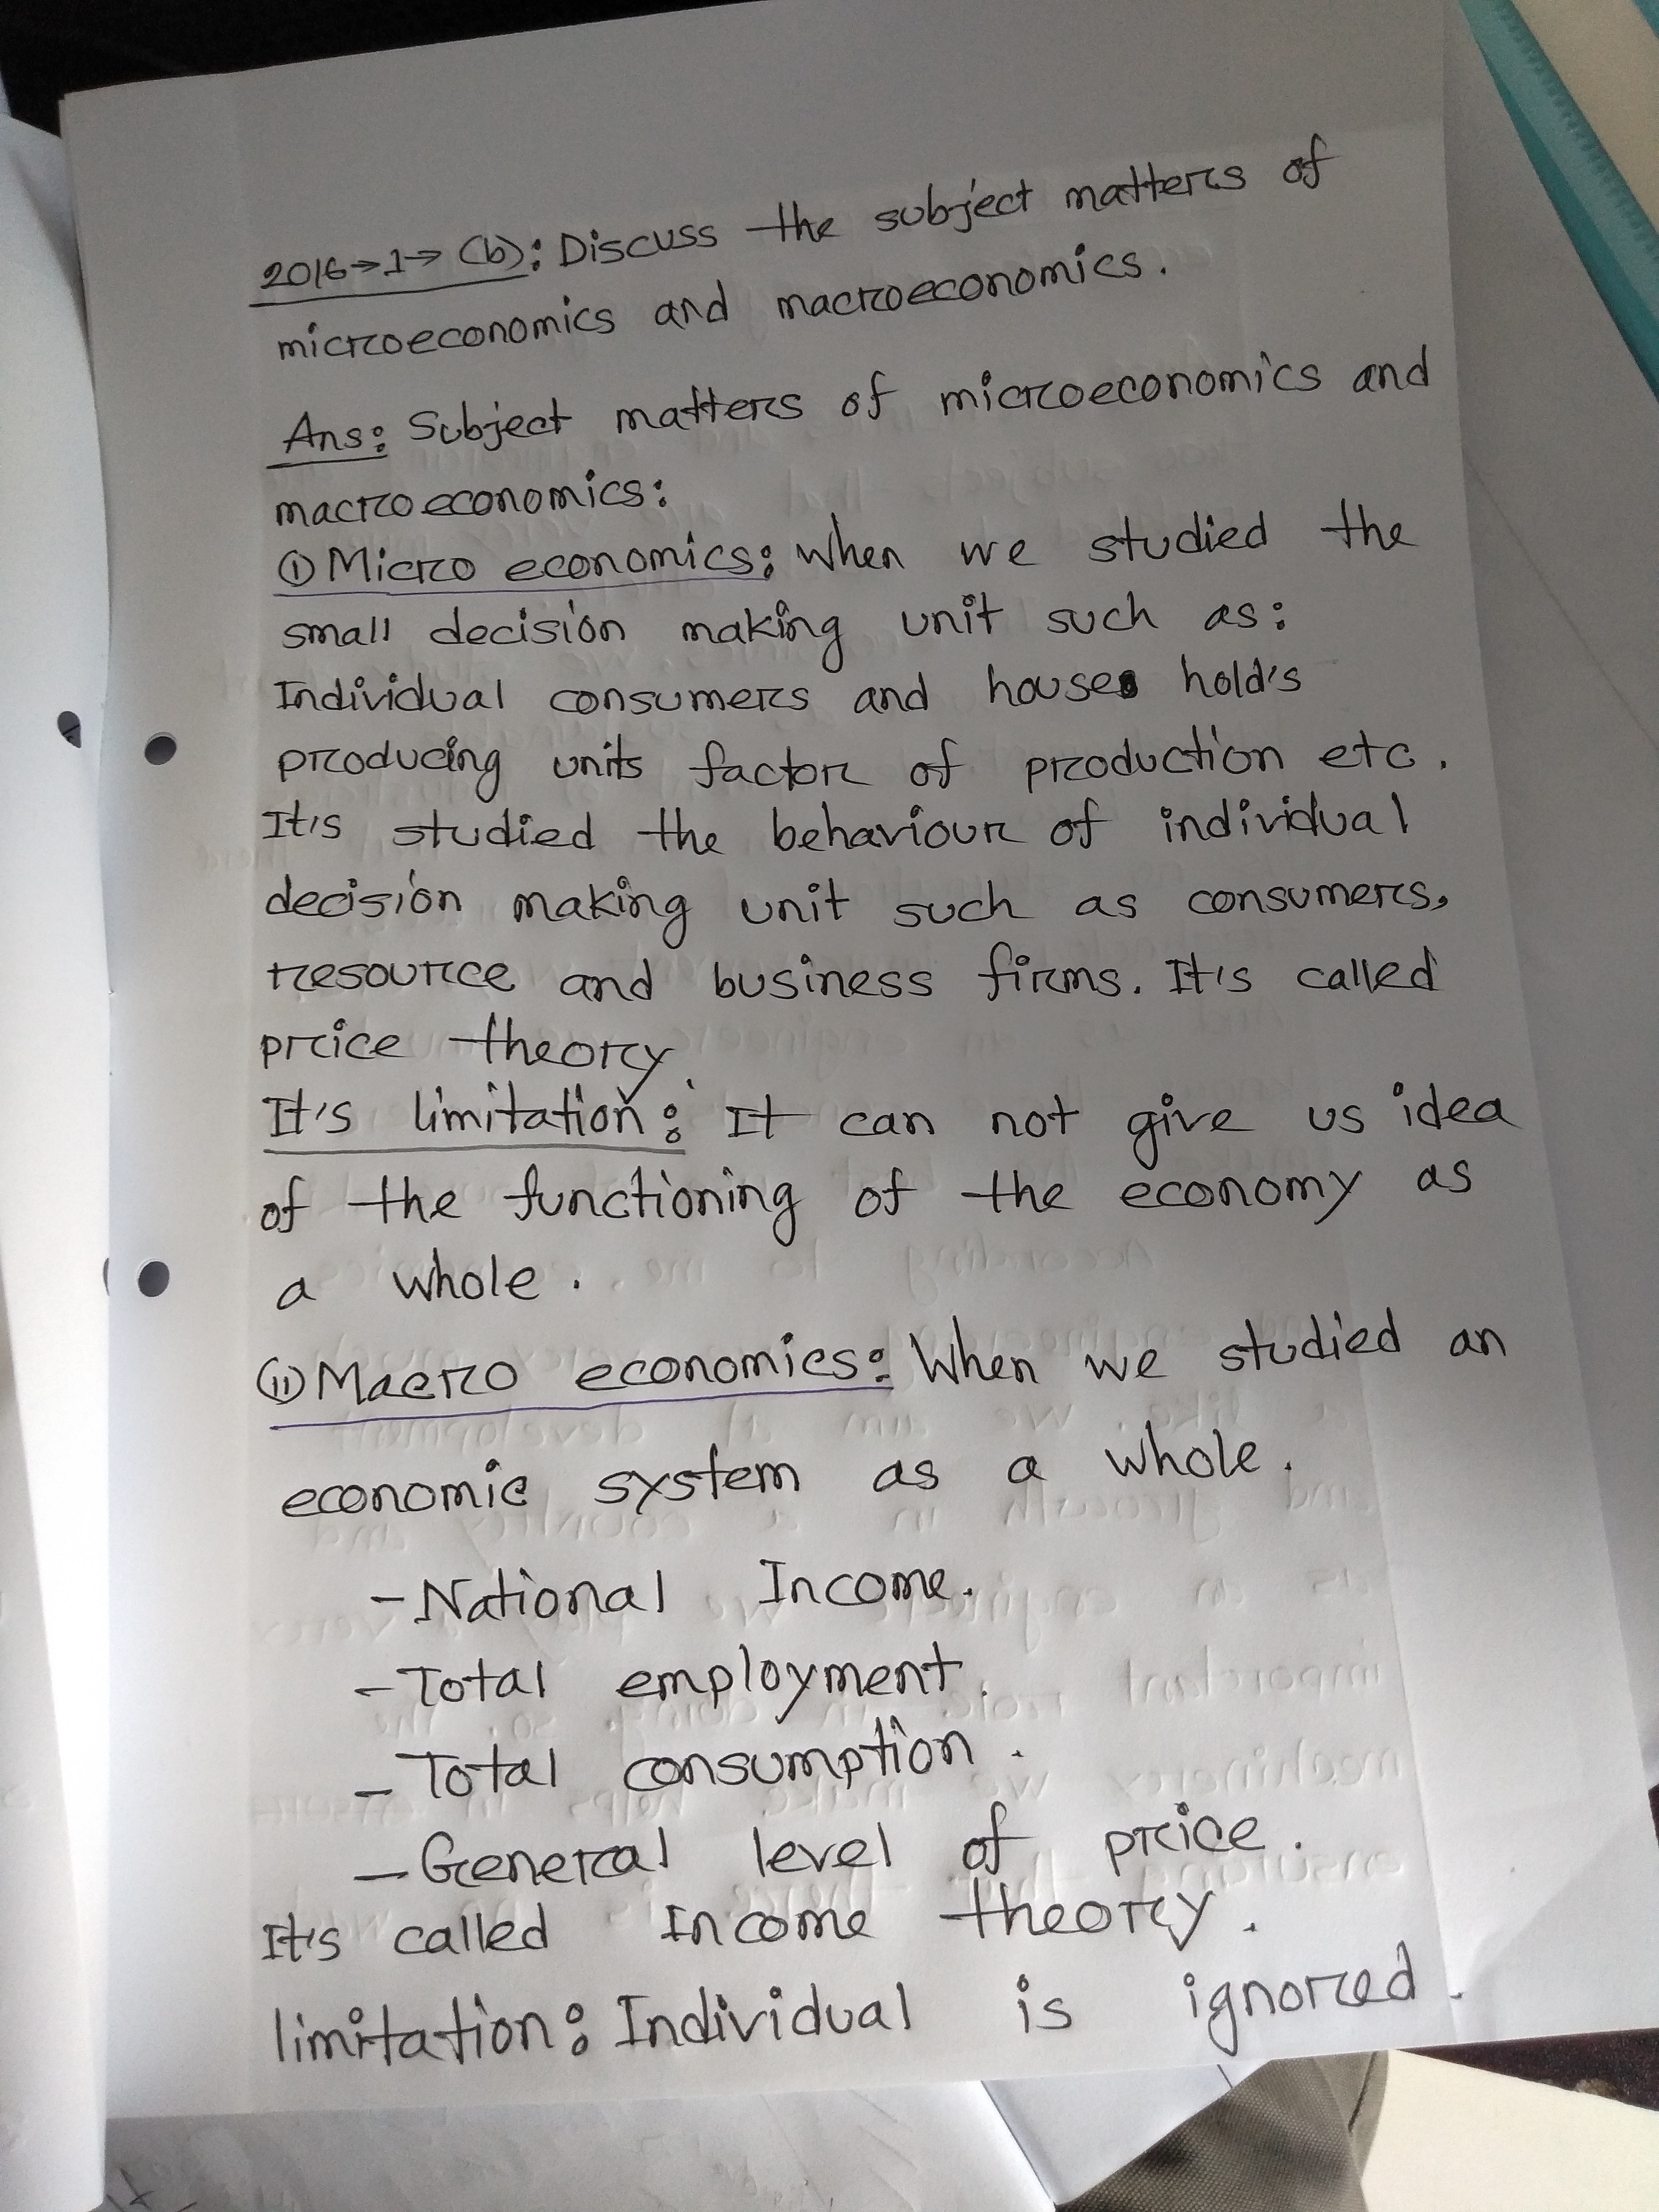 2016→1→(b): Discuss the subject matters of
microeconomics and macroeconomics.
Ans: Subject matters of microeconomics and
macroeconomics:
(i) Micro economics: When we studied the
small decision making unit such as:
Individual consumers and house hold's
producing units factor of production etc.
It's studied the behaviour of individual
decision making unit such as consumers,
resource and business firms. It's called
price theory.
It's limitation: It can not give us idea
of the functioning of the economy as
a whole.
(ii) Macro economics: When we studied an
economic system as a whole.
- National Income.
- Total employment.
- Total consumption.
- General level of price.
It's called Income theory.
limitation: Individual is ignored.